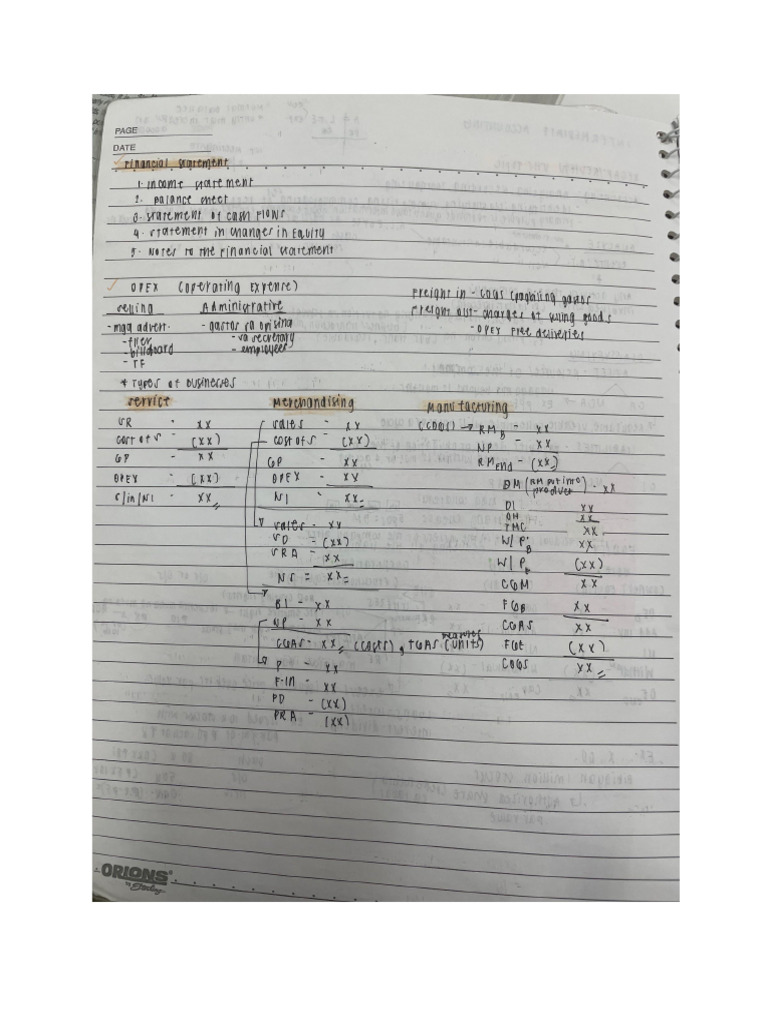 PAGE
DATE
✓ Financial statement
1. Income statement
2. Balance sheet
3. Statement of cash flows
4. Statement in changes in Equity
5. Notes to the Financial statement
✓ OPEX (operating Expense)
selling Administrative
- mga advert. - gastos sa opisina
- flier - sa secretary
- billboard - employees
- TF
Freight in - COGS (pagbiling
Freight out - charges of selling goods
- OPEX Free deliveries
* Types of businesses
Service
SR - xx
cost of s - (xx)
GP - xx
OPEX - (xx)
NI - xx
Merchandising
sales - xx
cost of s - (xx)
GP - xx
OPEX - xx
NI - xx
sales - xx
SD - (xx)
SRA - xx
NS = xx
BI - xx
NP - xx
CGAS - xx (costs), TGAS (units)
P - xx
F-IN - xx
PD - (xx)
PRA - (xx)
Manufacturing
(COGS) → RM B - xx
NP - xx
RM End - (xx)
DM (RM put into product) - xx
DL xx
OH xx
TMC xx
W/P B xx
W/P E (xx)
CGM xx
FGB xx
CGAS xx
FGE (xx)
COGS xx
ORIONS
by Sterling